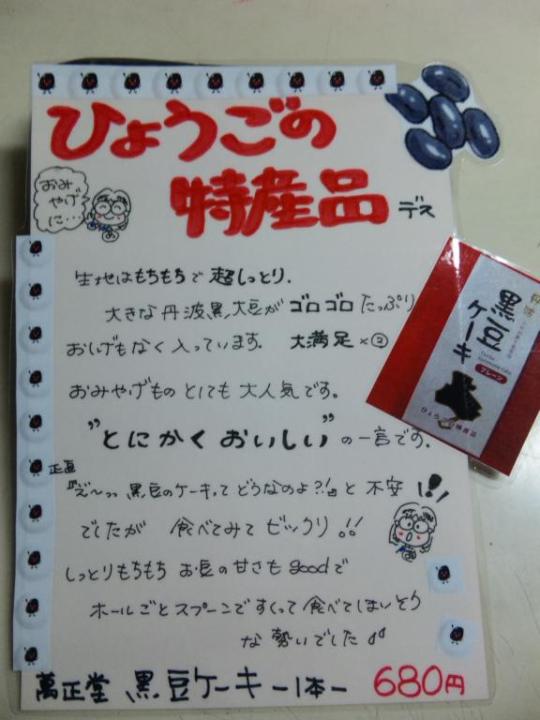 ひょうごの
特産品 デス
おみ
やげ
に…
生地はもちもちで超しっとり。
大きな丹波黒大豆がゴロゴロたっぷり
おしげもなく入っています。 大満足×②
おみやげものとしても大人気です。
"とにかくおいしい"の一言です。
正直
『え〜っっ黒豆のケーキってどうなのよ?!』と不安
でしたが 食べてみてビックリ!!
しっとりもちもち お豆の甘さもgoodで
ホールごとスプーンですくって食べてしまいそう
な勢いでした
萬正堂 黒豆ケーキ ー1本ー 680円
黒豆
ケーキ
プレーン
ひょうご特産品